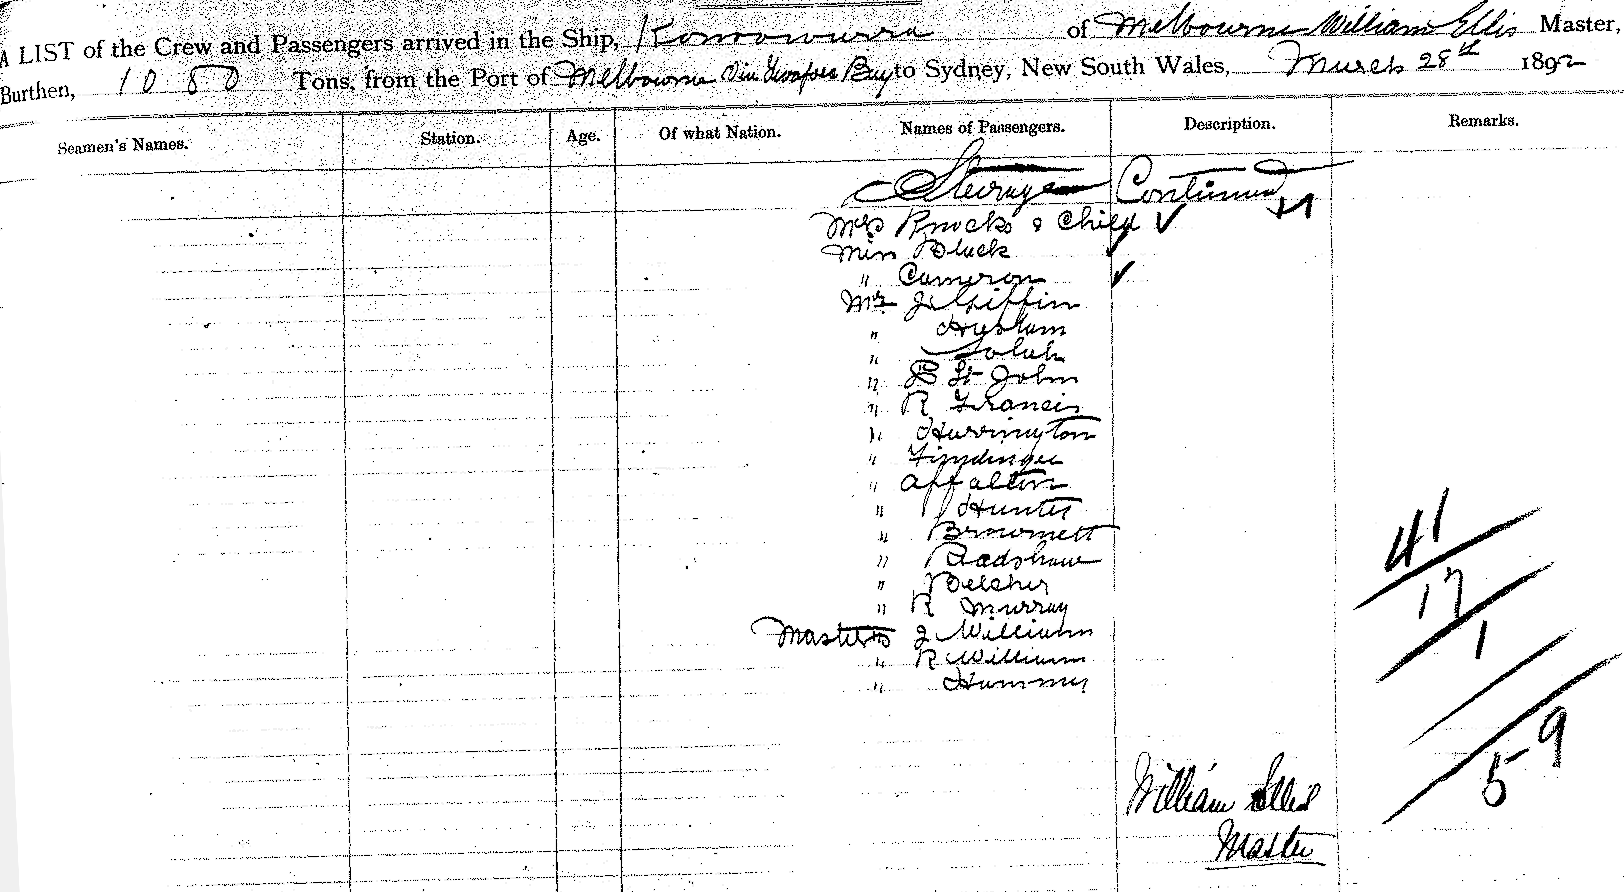 A LIST of the Crew and Passengers arrived in the Ship, Konoowarra of Melbourne William Ellis Master,
Burthen, 1080 Tons, from the Port of Melbourne Via Bay to Sydney, New South Wales, March 28th 1892
Seamen's Names. Station. Age. Of what Nation. Names of Passengers. Description. Remarks.
Steerage Continued
Mrs Knocks & Child
Miss Black
" Cameron
Mr J Giffin
"
"
" St John
" R Francis
" Harrington
"
"
" Hunter
" Brownett
" Bradshaw
" Belcher
" R Murray
Masters J William
" R William
" Hammer
41
17
1
59
William Ellis
Master